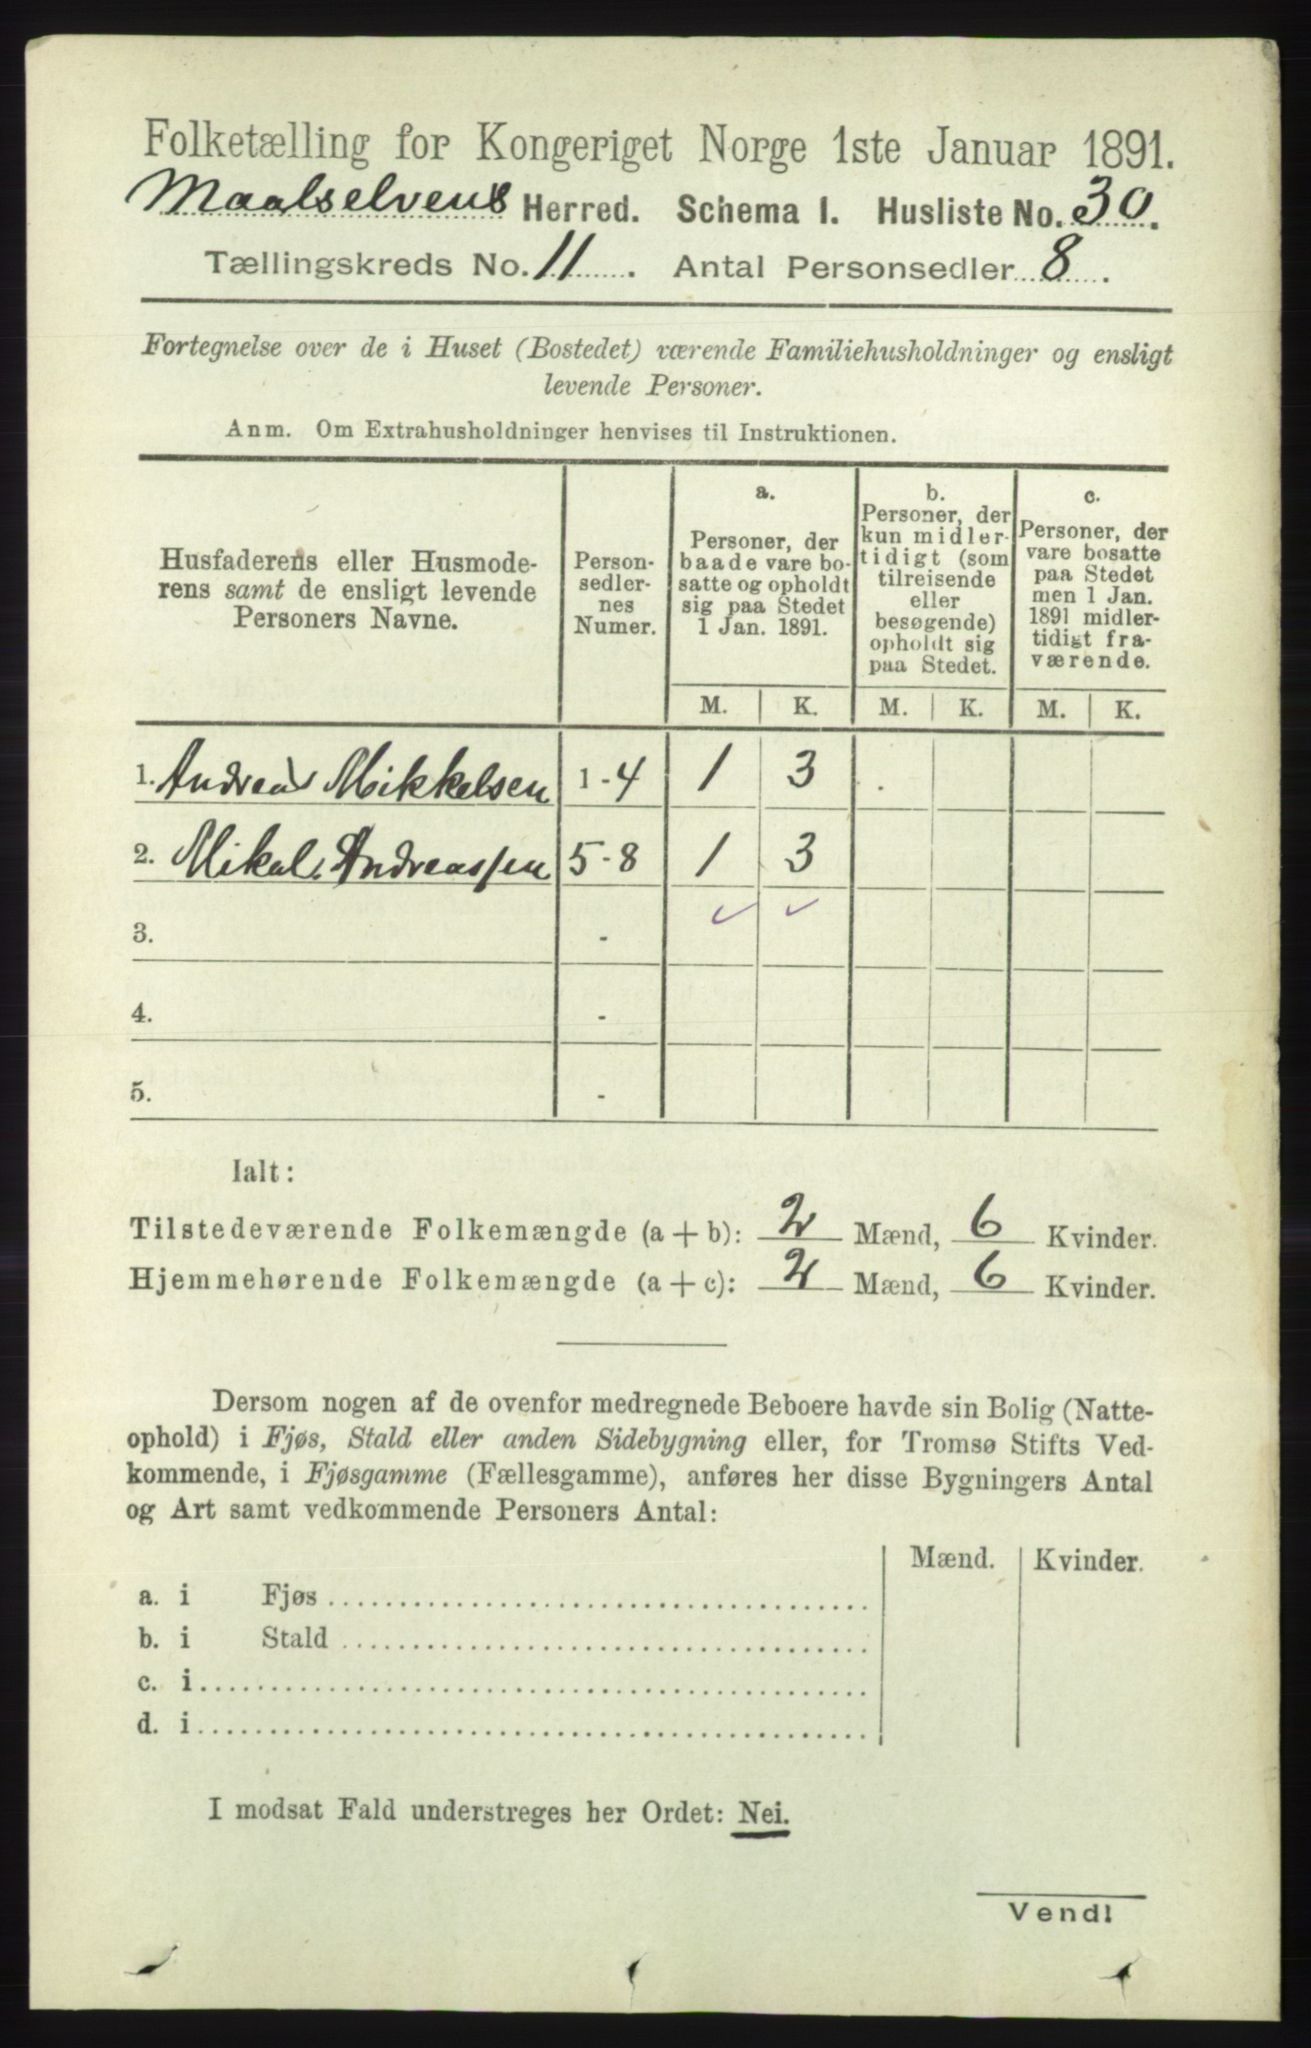 Folketælling for Kongeriget Norge 1ste Januar 1891.
Maalselvens Herred. Schema I. Husliste No. 30.
Tællingskreds No. 11. Antal Personsedler 8.
Fortegnelse over de i Huset (Bostedet) værende Familiehusholdninger og ensligt
levende Personer.
Anm. Om Extrahusholdninger henvises til Instruktionen.
Husfaderens eller Husmode-
rens samt de ensligt levende
Personers Navne.
Person-
sedler-
nes
Numer.
a.
Personer, der
baade vare bo-
satte og opholdt
sig paa Stedet
1 Jan. 1891.
b.
Personer, der
kun midler-
tidigt (som
tilreisende
eller
besøgende)
opholdt sig
paa Stedet.
c.
Personer, der
vare bosatte
paa Stedet
men 1 Jan.
1891 midler-
tidigt fra-
værende.
M. K. M. K. M. K.
1. Andreas Mikkelsen 1-4 1 3
2. Mikal Andreassen 5-8 1 3
3. -
4. -
5. -
Ialt:
Tilstedeværende Folkemængde (a + b): 2 Mænd, 6 Kvinder.
Hjemmehørende Folkemængde (a + c): 2 Mænd, 6 Kvinder.
Dersom nogen af de ovenfor medregnede Beboere havde sin Bolig (Natte-
ophold) i Fjøs, Stald eller anden Sidebygning eller, for Tromsø Stifts Ved-
kommende, i Fjøsgamme (Fællesgamme), anføres her disse Bygningers Antal
og Art samt vedkommende Personers Antal:
Mænd. Kvinder.
a. i Fjøs
b. i Stald
c. i
d. i
I modsat Fald understreges her Ordet: Nei.
Vend!